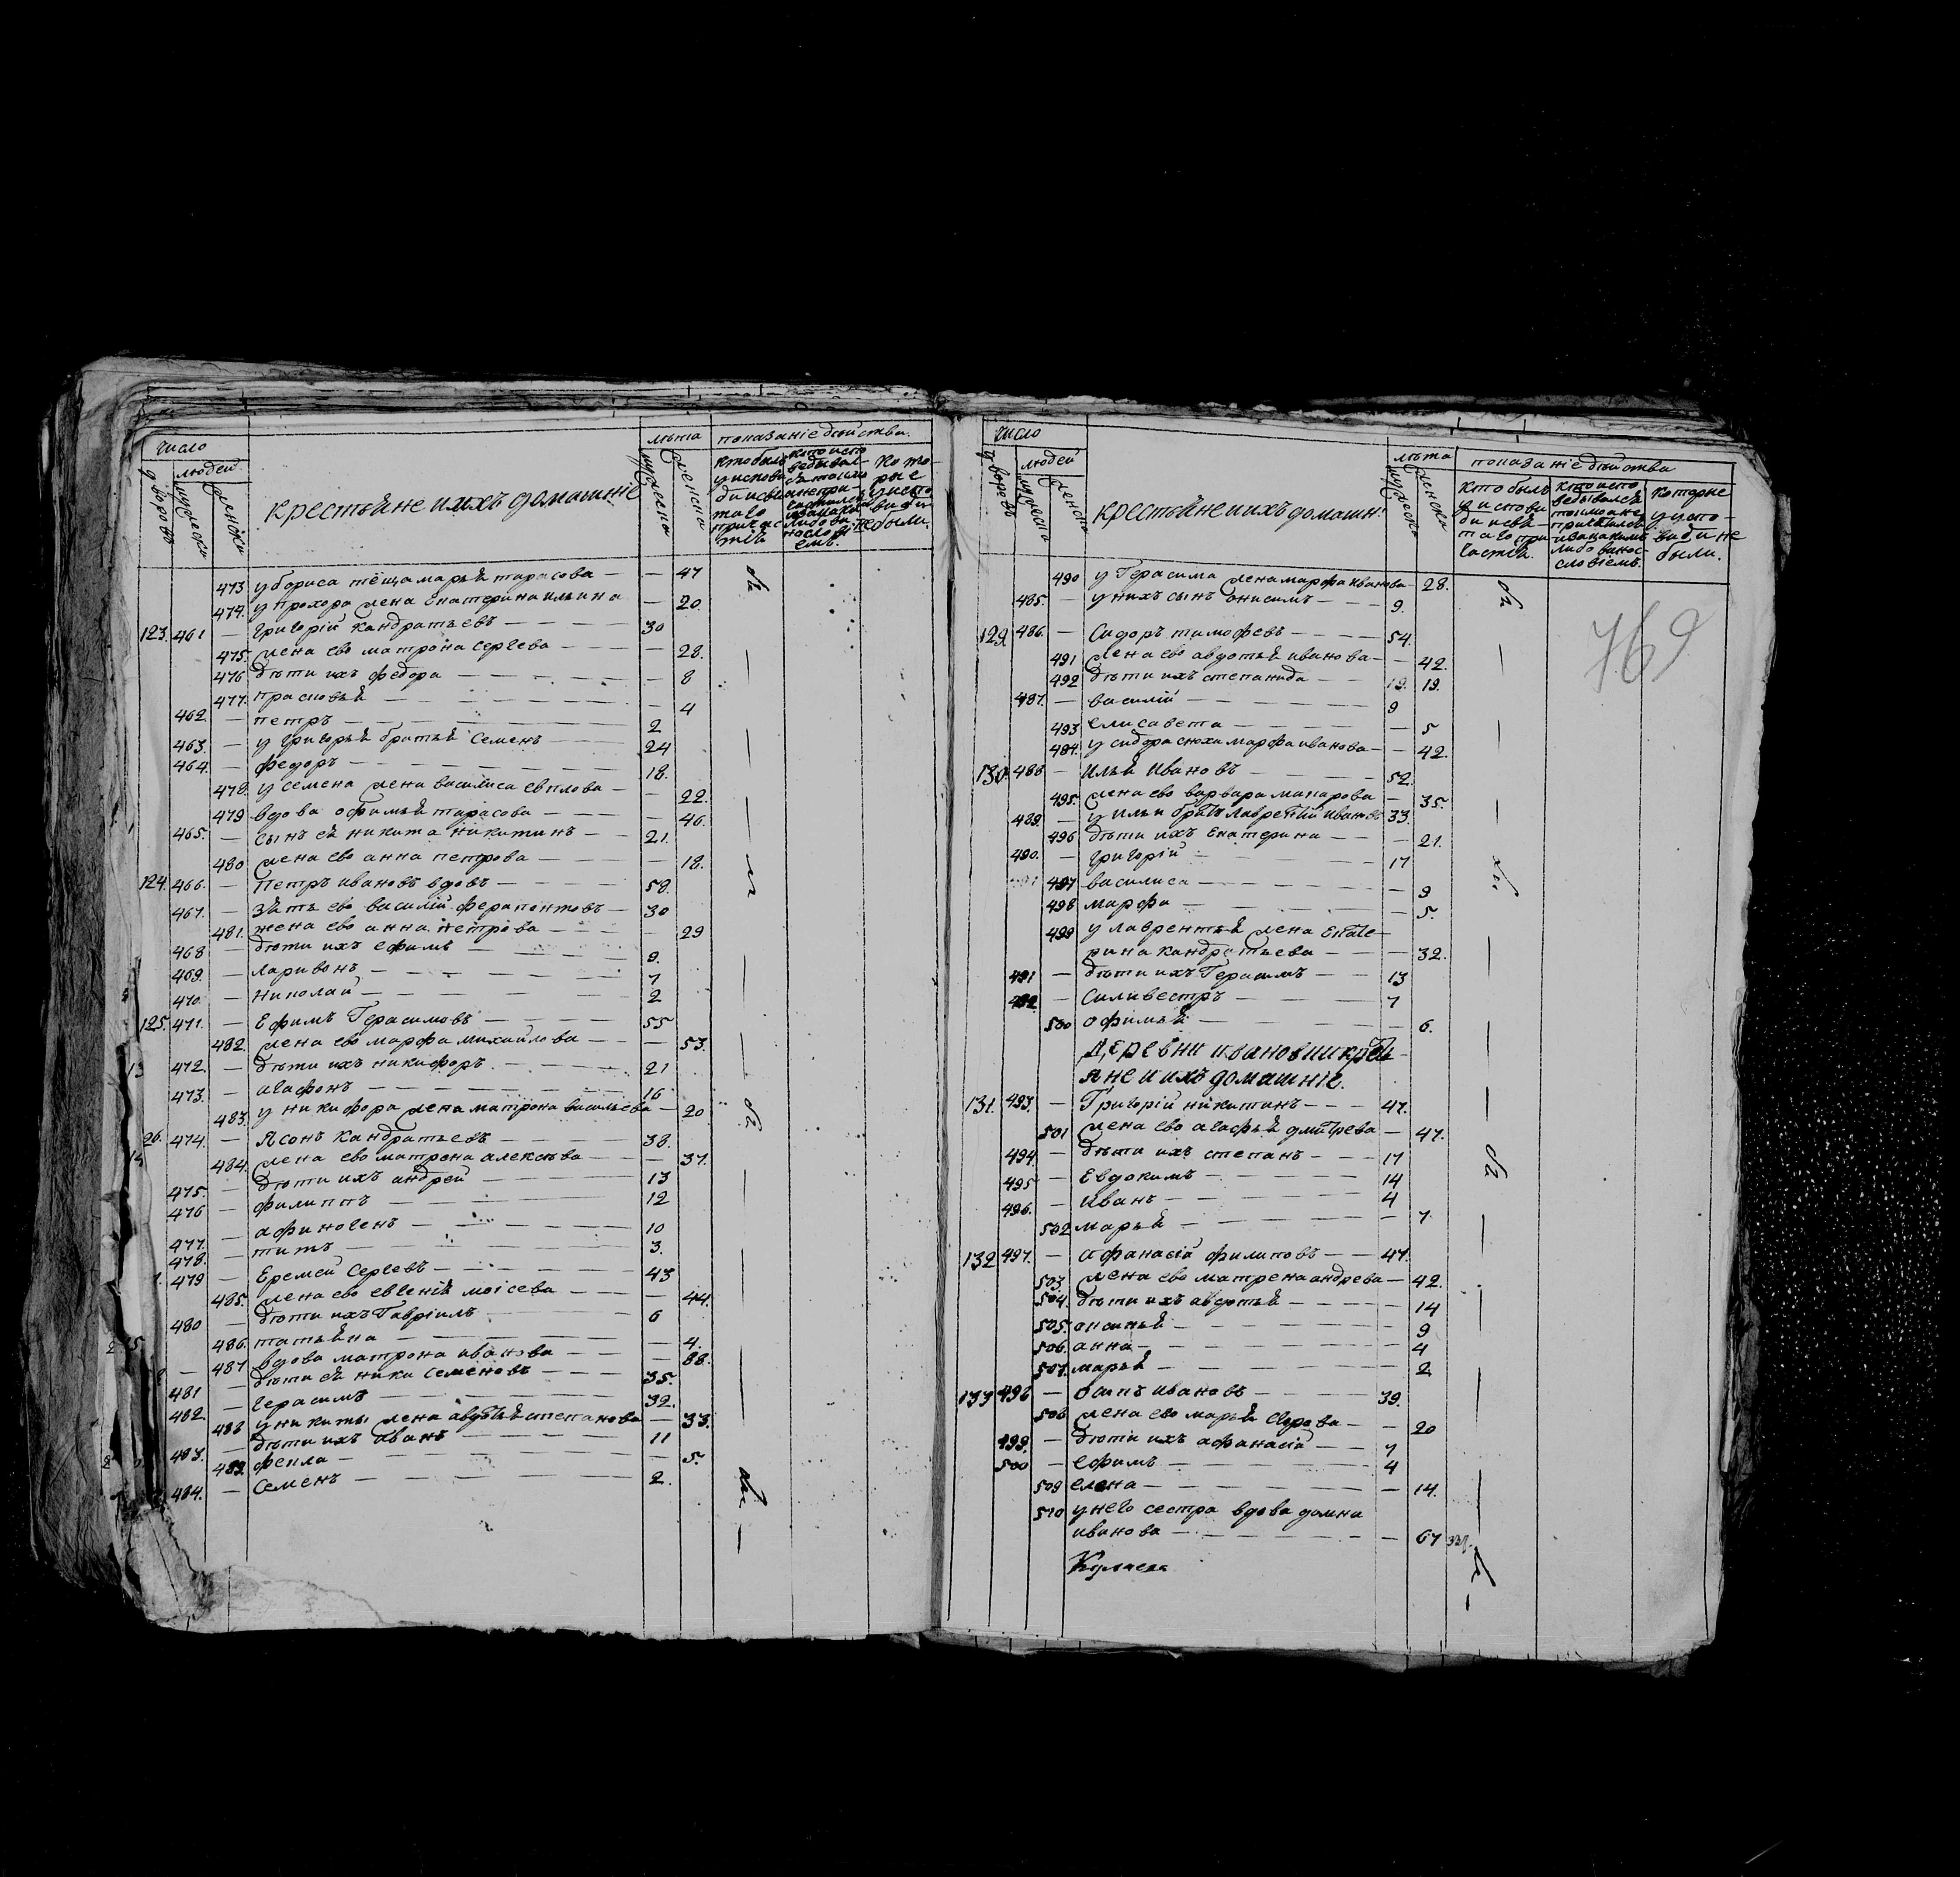 Число
людей
дворовъ
мужески
женски
крестьяне и ихъ домашніе
лѣта
мужеска
женска
показаніе дѣйства.
473 у бориса тёща марья тарасова — — 47
474. у прохора жена екатерина ильина — 20.
123. 461 — григорій кандратьевъ — 30
475. жена ево матрона сергева — — 28.
476 дѣти ихъ федора — — 8
477. прасковья — — 4
462. — петръ — 2
463. — у григорья братья семенъ — 24
464. — федоръ — 18.
478. у семена жена василиса евплова — — 22.
479 вдова офимья тарасова — — 46.
465. — сынъ ея никита никитинъ — 21.
480 жена ево анна петрова — — 18.
124. 466. — петръ ивановъ вдовъ — 58.
467. — зять ево василій ферапонтовъ — 30
481. жена ево анна петрова — — 29
468 — дѣти ихъ ефимъ — 9.
469. — ларивонъ — 7
470. — николай — 2
125. 471. — Ефимъ Герасимовъ — 55
482. жена ево марфа михайлова — — 53.
472 — дѣти ихъ никифоръ — 21
473. — агафонъ — 16
483. у никифора жена матрона васильева — 20
26. 474. — Ясонъ кандратьевъ — 38.
484. жена ево матрена алексѣва — — 37.
475. — дѣти ихъ андрей — 13
476 — филиппъ — 12
477. — афиногенъ — 10
478. — титъ — 3.
479 — Еремей Сергевъ — 43
485. жена ево евгенія моисева — — 44.
480 — дѣти ихъ Гавріилъ — 6
486. татьяна — — 4.
487 вдова матрона иванова — — 88.
481 — дѣти ея ники семеновъ — 35.
482. — герасимъ — 32.
488 у никиты жена авдотья степанова — 33.
483. — дѣти ихъ иванъ — 11
489. фекла — — 5.
484. — семенъ — 2.
Число
дворовъ
людей
мужеска
женска
крестьяне и ихъ домашн:
лѣта
мужеска
женска
показаніе дѣйства
769
490 у Герасима жена марфа иванова — 28.
485. — у нихъ сынъ анисимъ — 9.
129. 486. — Сидоръ тимофевъ — 54.
491 жена ево авдотья иванова — — 42.
492 дѣти ихъ степанида — 19. 19.
487. — василій — 9
493 елисавета — — 5
494. у сидора сноха марфа иванова — — 42.
130. 488 — илья Ивановъ — 52.
495. жена ево варвара макарова — 35.
489. — у ильи братъ лаврентій ивановъ 33.
496 дѣти ихъ екатерина — — 21.
490. — григорій — 17
497 василиса — — 9
498 марфа — — 5.
499 у лаврентья жена екате
рина кандратьева — — 32.
491 — дѣти ихъ Герасимъ — 13
492. — Силивестръ — 7
500 офимья — — 6.
деревни ивановки крест
яне и ихъ домашніе.
131. 493. — Григорій никитинъ — 47.
501 жена ево агафья дмитрева — 47.
494. — дѣти ихъ степанъ — 17
495 — Евдокимъ — 14
496. — иванъ — 4
502 марья — — 7.
132 497. — афанасій филиповъ — 47.
503 жена ево матрена андрева — 42.
504. дѣти ихъ авдотья — 14
505. аксинья — 9
506. анна — 4
507. марья — 2
133 498 — осипъ ивановъ — 39.
508 жена ево марья — 20
499. — дѣти ихъ афанасій — 7
500 — ефимъ — 4
509 елена — — 14.
510 у него сестра вдова домна
иванова — — 67